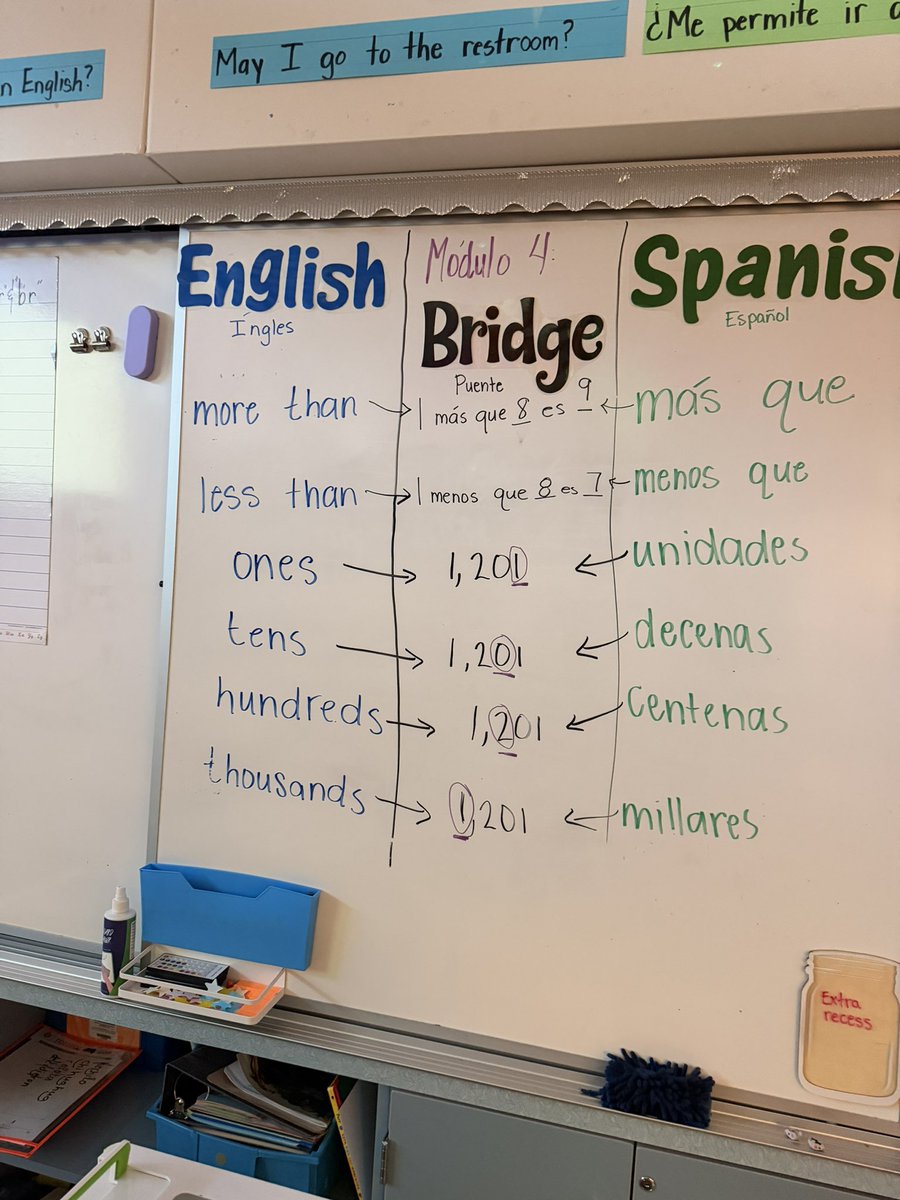 n English?
May I go to the restroom?
¿Me permite ir a
r & br"
English
Íngles
Módulo 4:
Bridge
Puente
Spanish
Español
more than
1 más que 8 es 9
más que
less than
1 menos que 8 es 7
menos que
ones
1,201
unidades
tens
1,201
decenas
hundreds
1,201
centenas
thousands
1,201
millares
Extra
recess